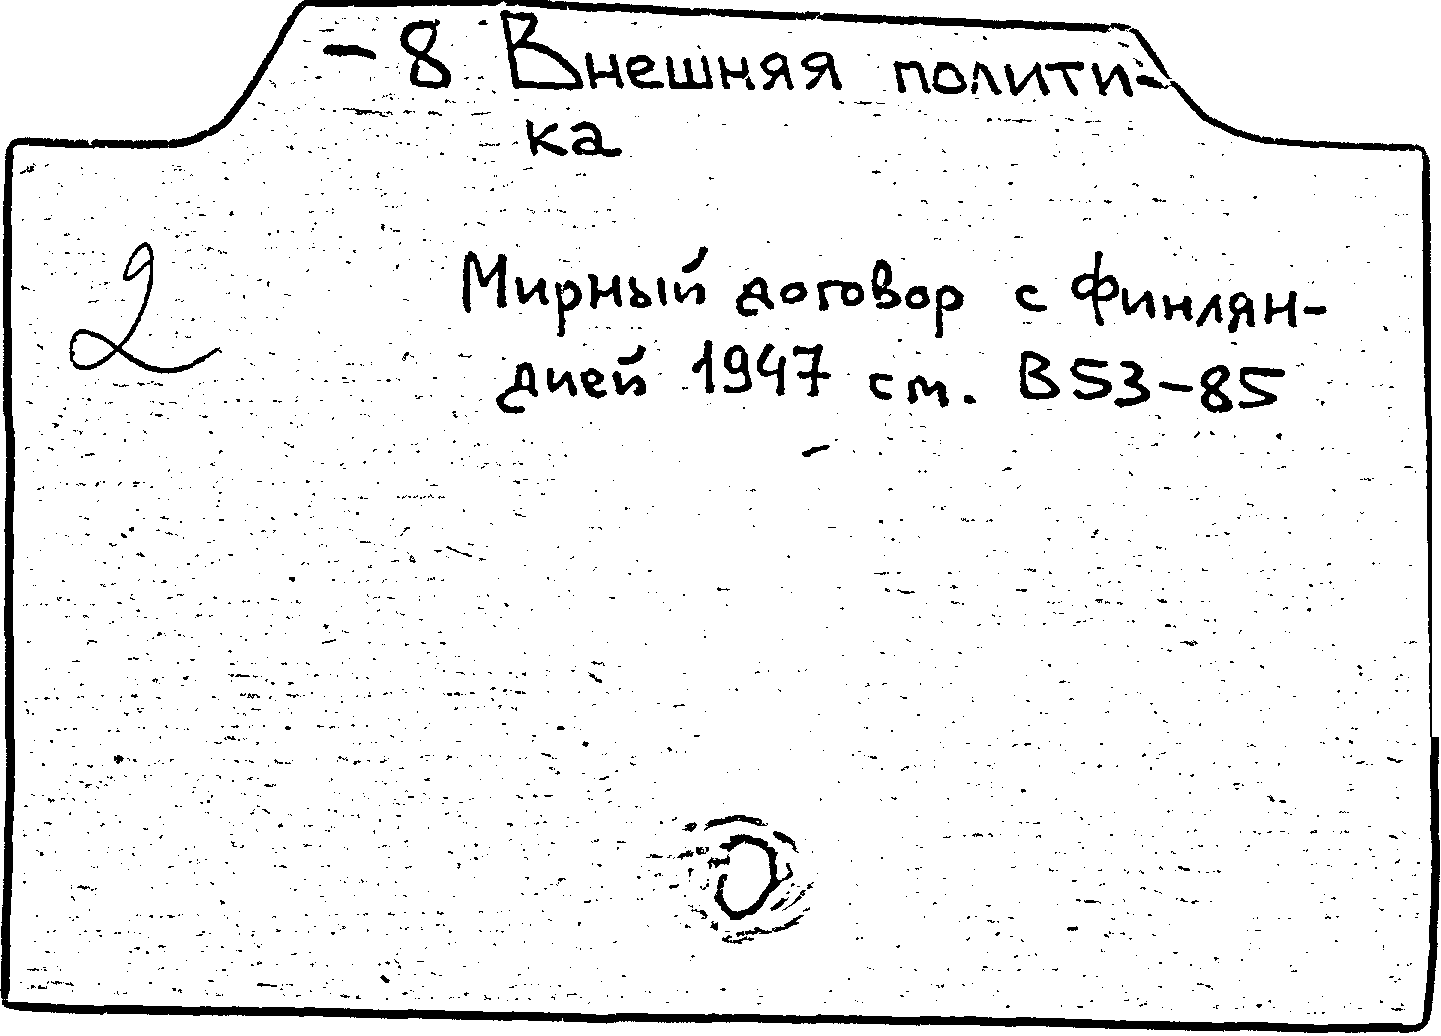 -8 Внешняя полити-
ка
2
Мирный договор с Финлян-
дией 1947 см. В53-85